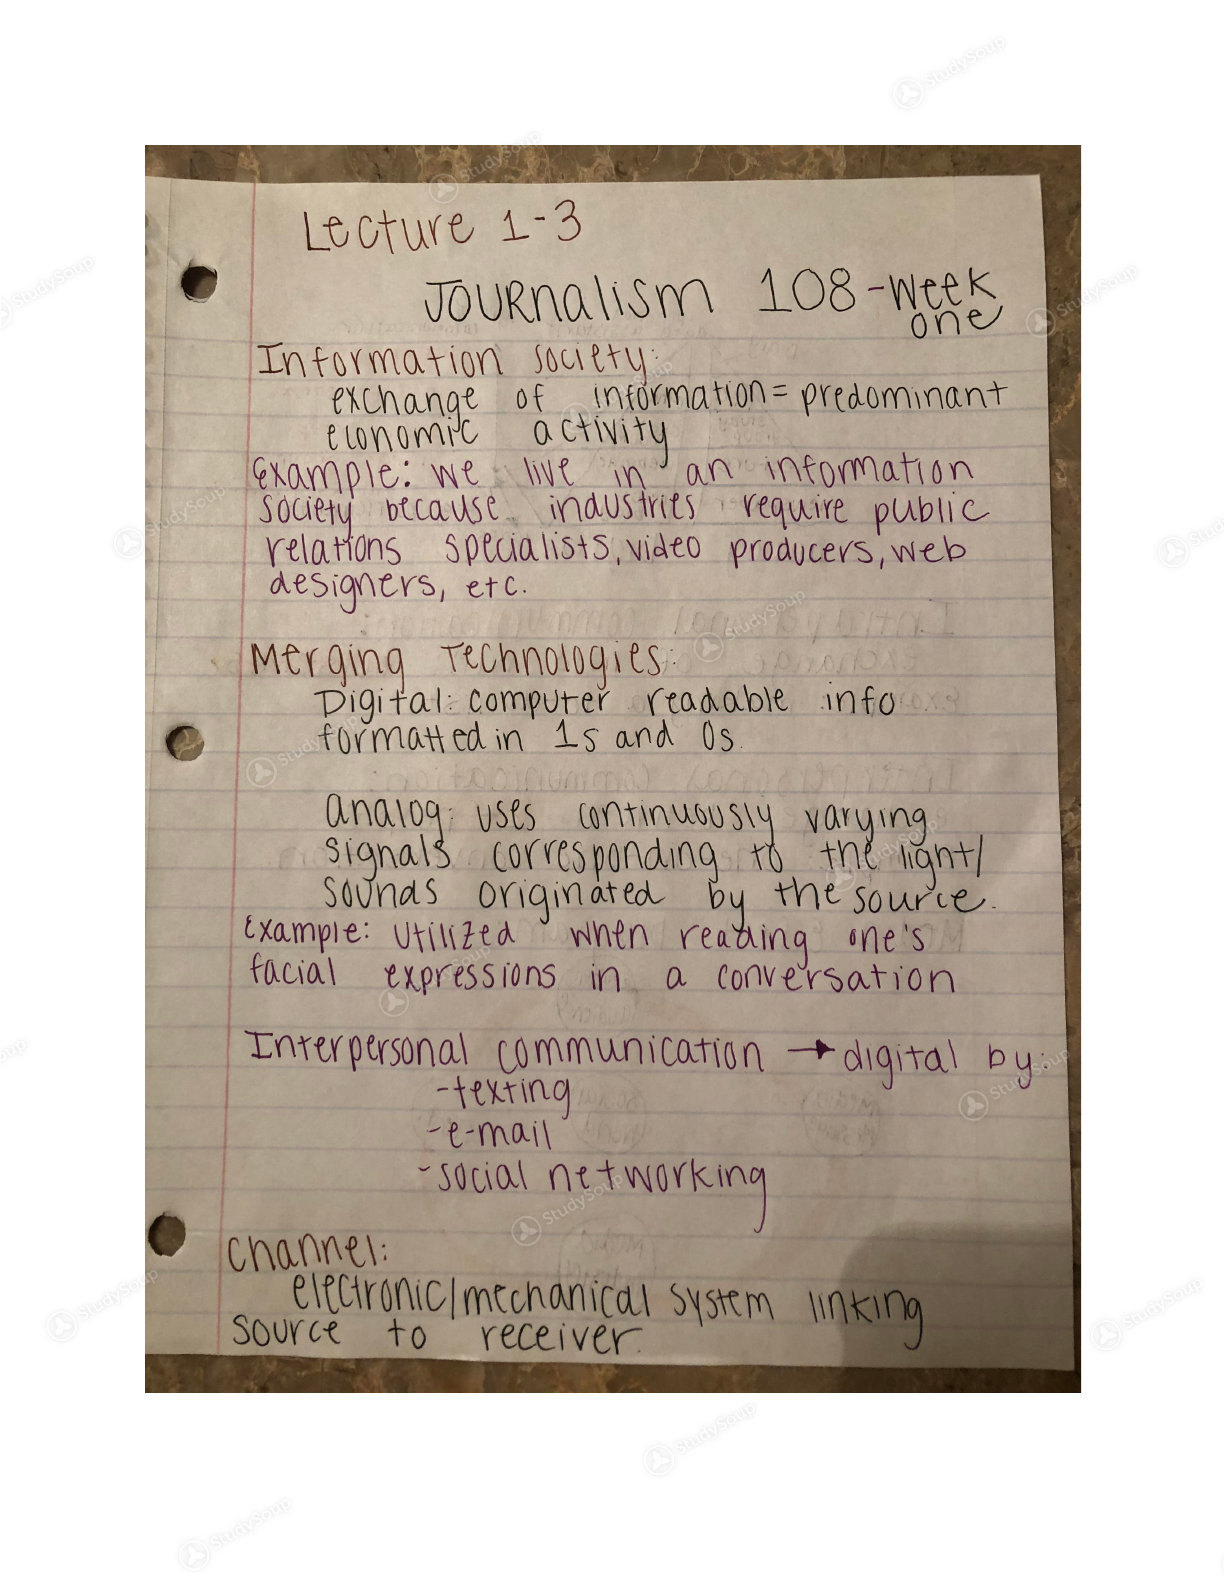 Lecture 1-3
Journalism 108 - week
one
Information society:
exchange of information = predominant
economic activity
Example: we live in an information
society because industries require public
relations specialists, video producers, web
designers, etc.
Merging Technologies:
Digital: computer readable info
formatted in 1s and 0s.
analog: uses continuously varying
signals corresponding to the light/
sounds originated by the source.
Example: utilized when reading one's
facial expressions in a conversation
Interpersonal communication → digital by:
-texting
-e-mail
-social networking
Channel:
electronic/mechanical system linking
source to receiver.
StudySoup